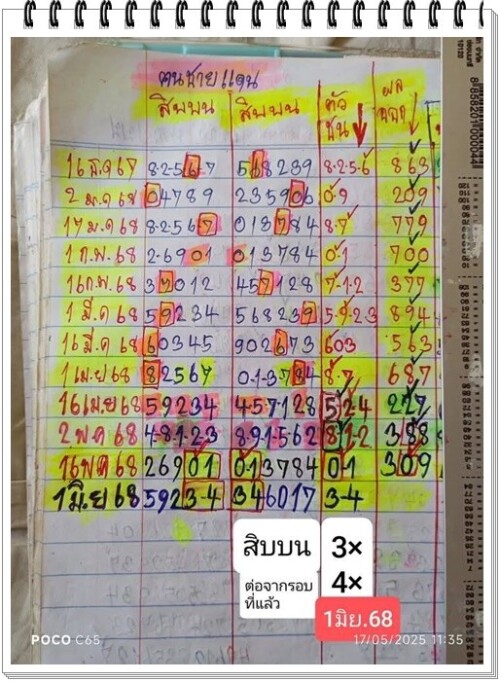 คนชายแดน
สิบบน สิบบน ตัวชน ผลออก
16 ธ.ค 67 8-2-5-6-7 568239 8-2-5-6 863
2 ม.ค 68 04789 235906 0-9 209
17 ม.ค 68 8-2-5-6-7 013784 8-7 779
1 ก.พ.68 2-6901 013784 0-1 700
16 ก.พ.68 37012 457128 7-1-2 377
1 มี.ค 68 59234 568239 5-9-2-3 894
16 มี.ค 68 60345 902673 603 563
1 เม.ย 68 82567 0-1-3784 8-7 687
16 เม.ย 68 59234 4-5-7-128 524 227
2 พ.ค 68 4-8-1-2-3 8-9-1-5-62 8-1-2 388
16 พ.ค 68 26901 0-13784 0-1 309
1 มิ.ย 68 5923-4 346017 3-4
สิบบน 3×
ต่อจากรอบที่แล้ว 4×
1มิย.68
POCO C65 17/05/2025 11:35